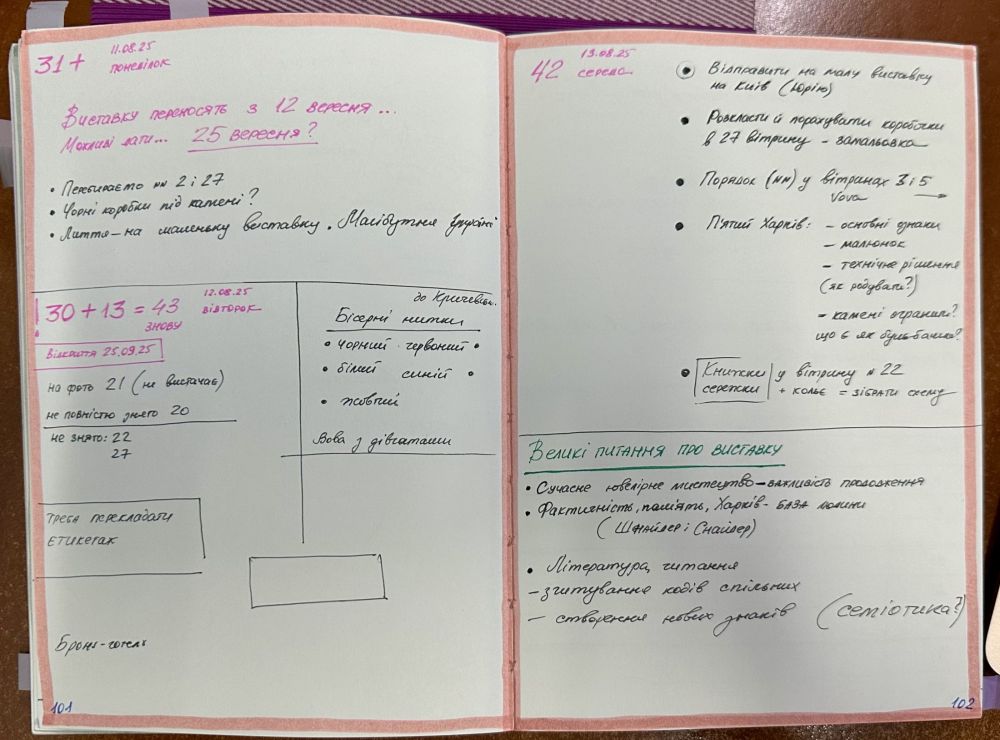 31+
11.08.25
понеділок
Виставку переносять з 12 вересня...
Можливі дати... 25 вересня?
• Перебираємо №№ 2 і 27
• Чорні коробки під камені?
• Лиття – на маленьку виставку. Майбутня Україні
! 30 + 13 = 43
знову
12.08.25
вівторок
Відкриття 25.09.25
на фото 21 (не вистачає)
не повністю знято 20
не знято: 22
27
Треба перекладати
етикетаж
Бронь-готель
до Кричевськ.
Бісерні нитки
• чорний червоний •
• білий синій •
• жовтий
Вова з дівчатами
101
42
13.08.25
середа
• Відправити на малу виставку
на Київ (Юрію)
• Розкласти й порахувати коробочки
в 27 вітрину – замальовка
• Порядок (№№) у вітринах 3 і 5
Vova →
• П'ятий Харків: – основні ознаки
– малюнок
– технічне рішення
(як робувати?)
– камені огранити?
що є як
• Книжки у вітрину № 22
сережки + кольє = зібрати схему
Великі питання про виставку
• Сучасне ювелірне мистецтво – важливість продовження
• Фактичність, пам'ять, Харків – база людини
(Шнайдер і Снайдер)
• Література, читання
– зчитування кодів спільних
– створення нових знаків (семіотика?)
102